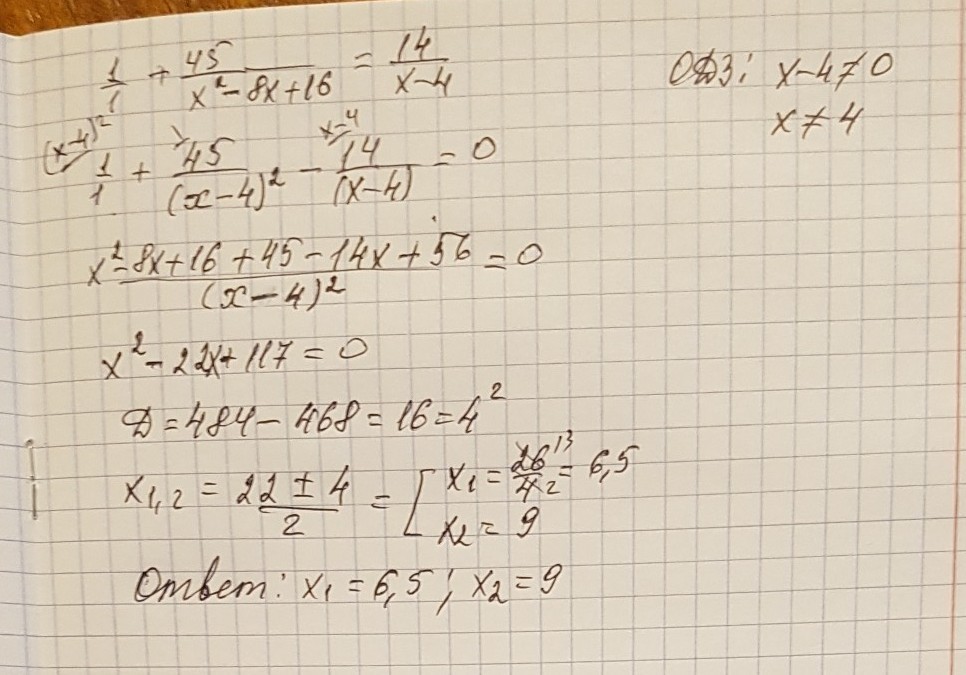 1/1 + 45/(x² - 8x + 16) = 14/(x-4)
ОДЗ: x-4≠0
x≠4
(x-4)² x-4
1/1 + 45/(x-4)² - 14/(x-4) = 0
(x² - 8x + 16 + 45 - 14x + 56)/(x-4)² = 0
x² - 22x + 117 = 0
D = 484 - 468 = 16 = 4²
x1,2 = (22 ± 4)/2 = [ x1 = 26 13/4 2 = 6,5
x2 = 9
Ответ: x1 = 6,5; x2 = 9